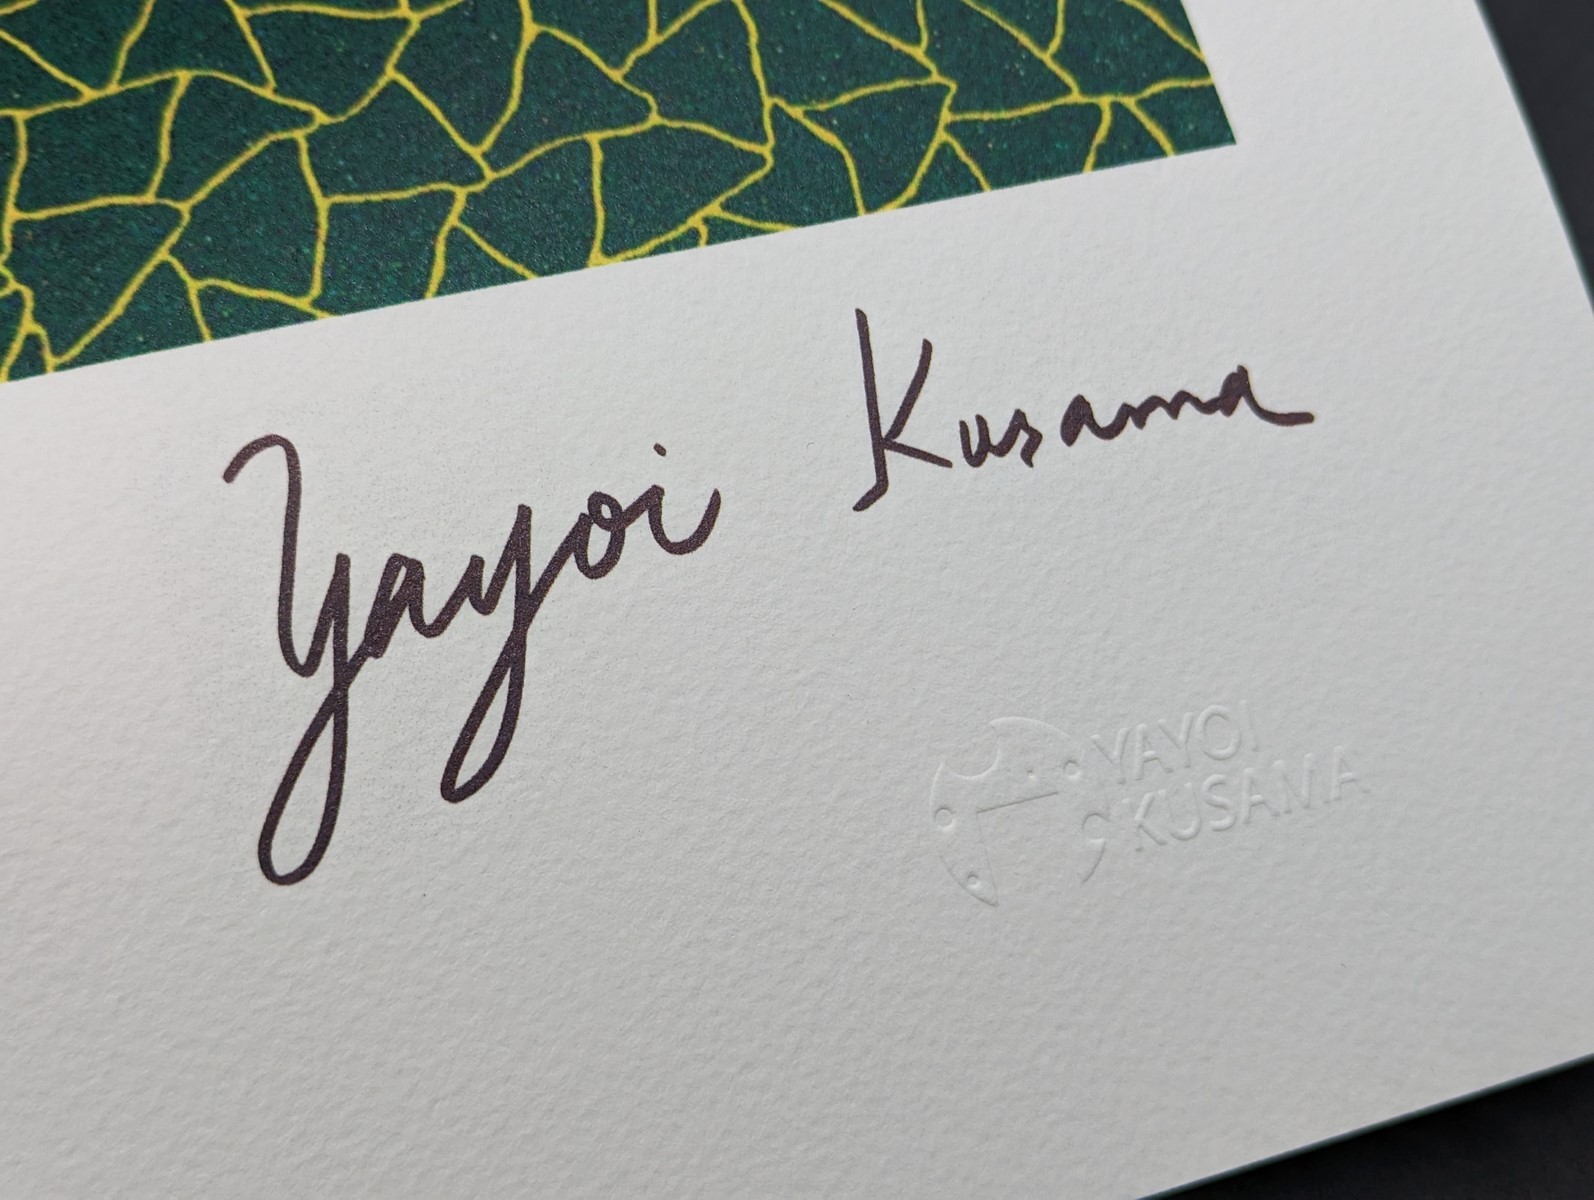 Yayoi Kusama
YAYOI
KUSAMA